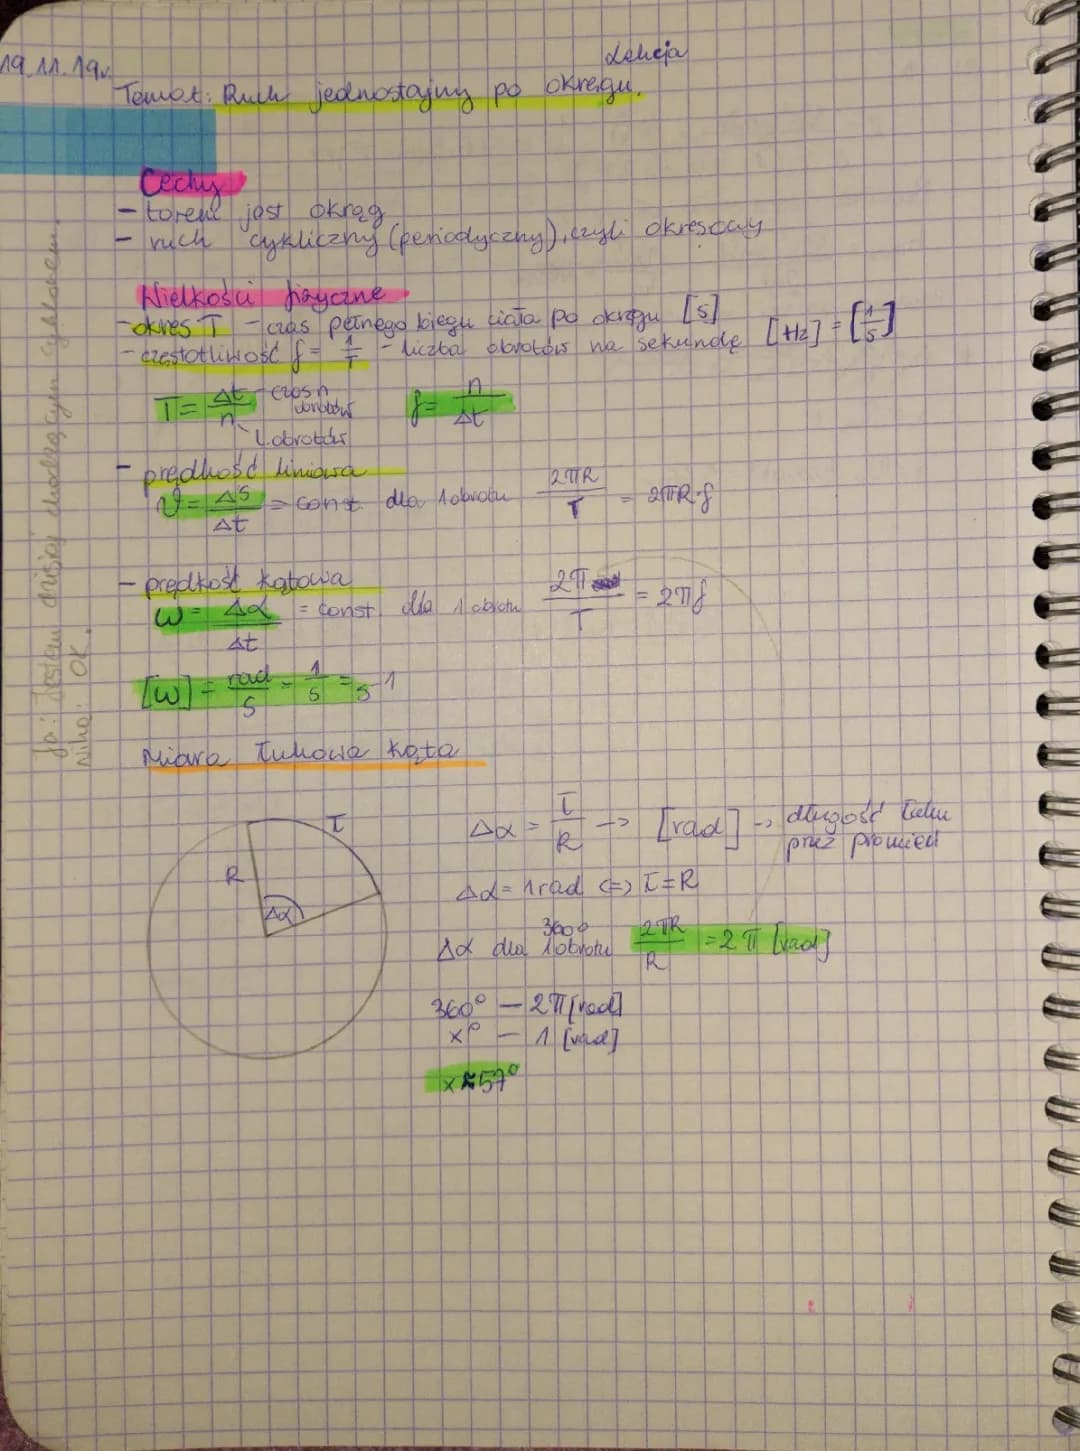 19.11.19r.
Lekcja
Temat: Ruch jednostajny po okręgu.
Cechy
- torem jest okrąg
- ruch cykliczny (periodyczny), czyli okresowy
Wielkości fizyczne
- okres T - czas pełnego biegu ciała po okręgu [s]
- częstotliwość f = 1/T - liczba obrotów na sekundę [Hz] = [1/s]
T = Δt/n czas n obrotów f = n/Δt
l. obrotów
- prędkość liniowa
V = Δs/Δt = const dla 1 obrotu 2πR/T = 2πR·f
- prędkość kątowa
ω = Δα/Δt = const dla 1 obrotu 2π/T = 2πf
[ω] = rad/s = 1/s = s⁻¹
Miara łukowa kąta
Ł
R
Δα
Δα = Ł/R → [rad] → długość łuku
przez promień
Δα = 1rad ⇔ Ł = R
360°
Δα dla 1 obrotu 2πR/R = 2π [rad]
360° — 2π [rad]
x° — 1 [rad]
x ≈ 57°
Ja: Jestem dzisiaj chodzącym cyklonem.
Niko: OK.